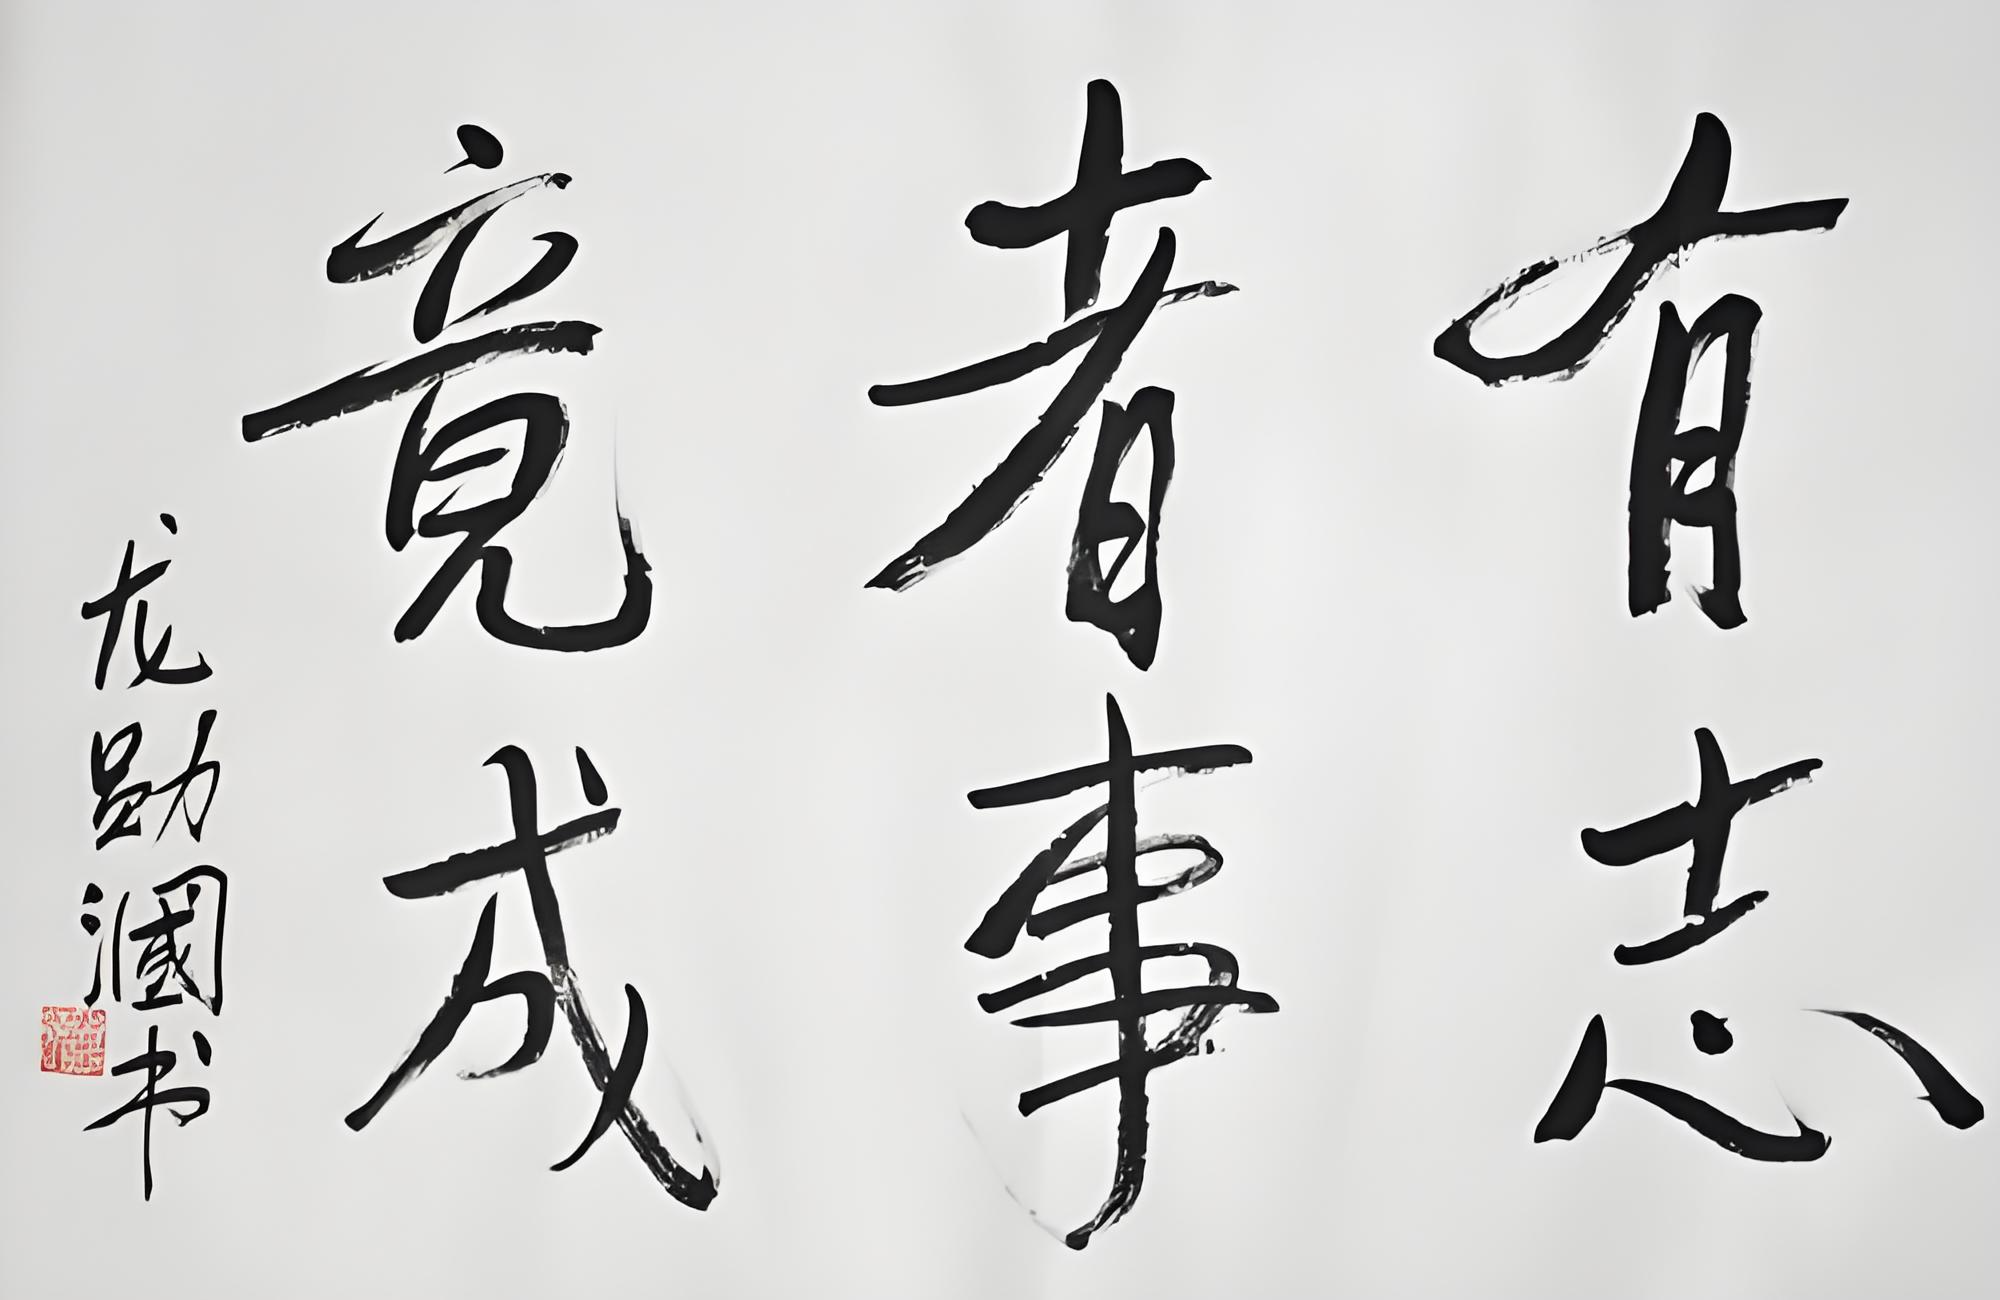 有志
者事
竟成
龙勋漍书